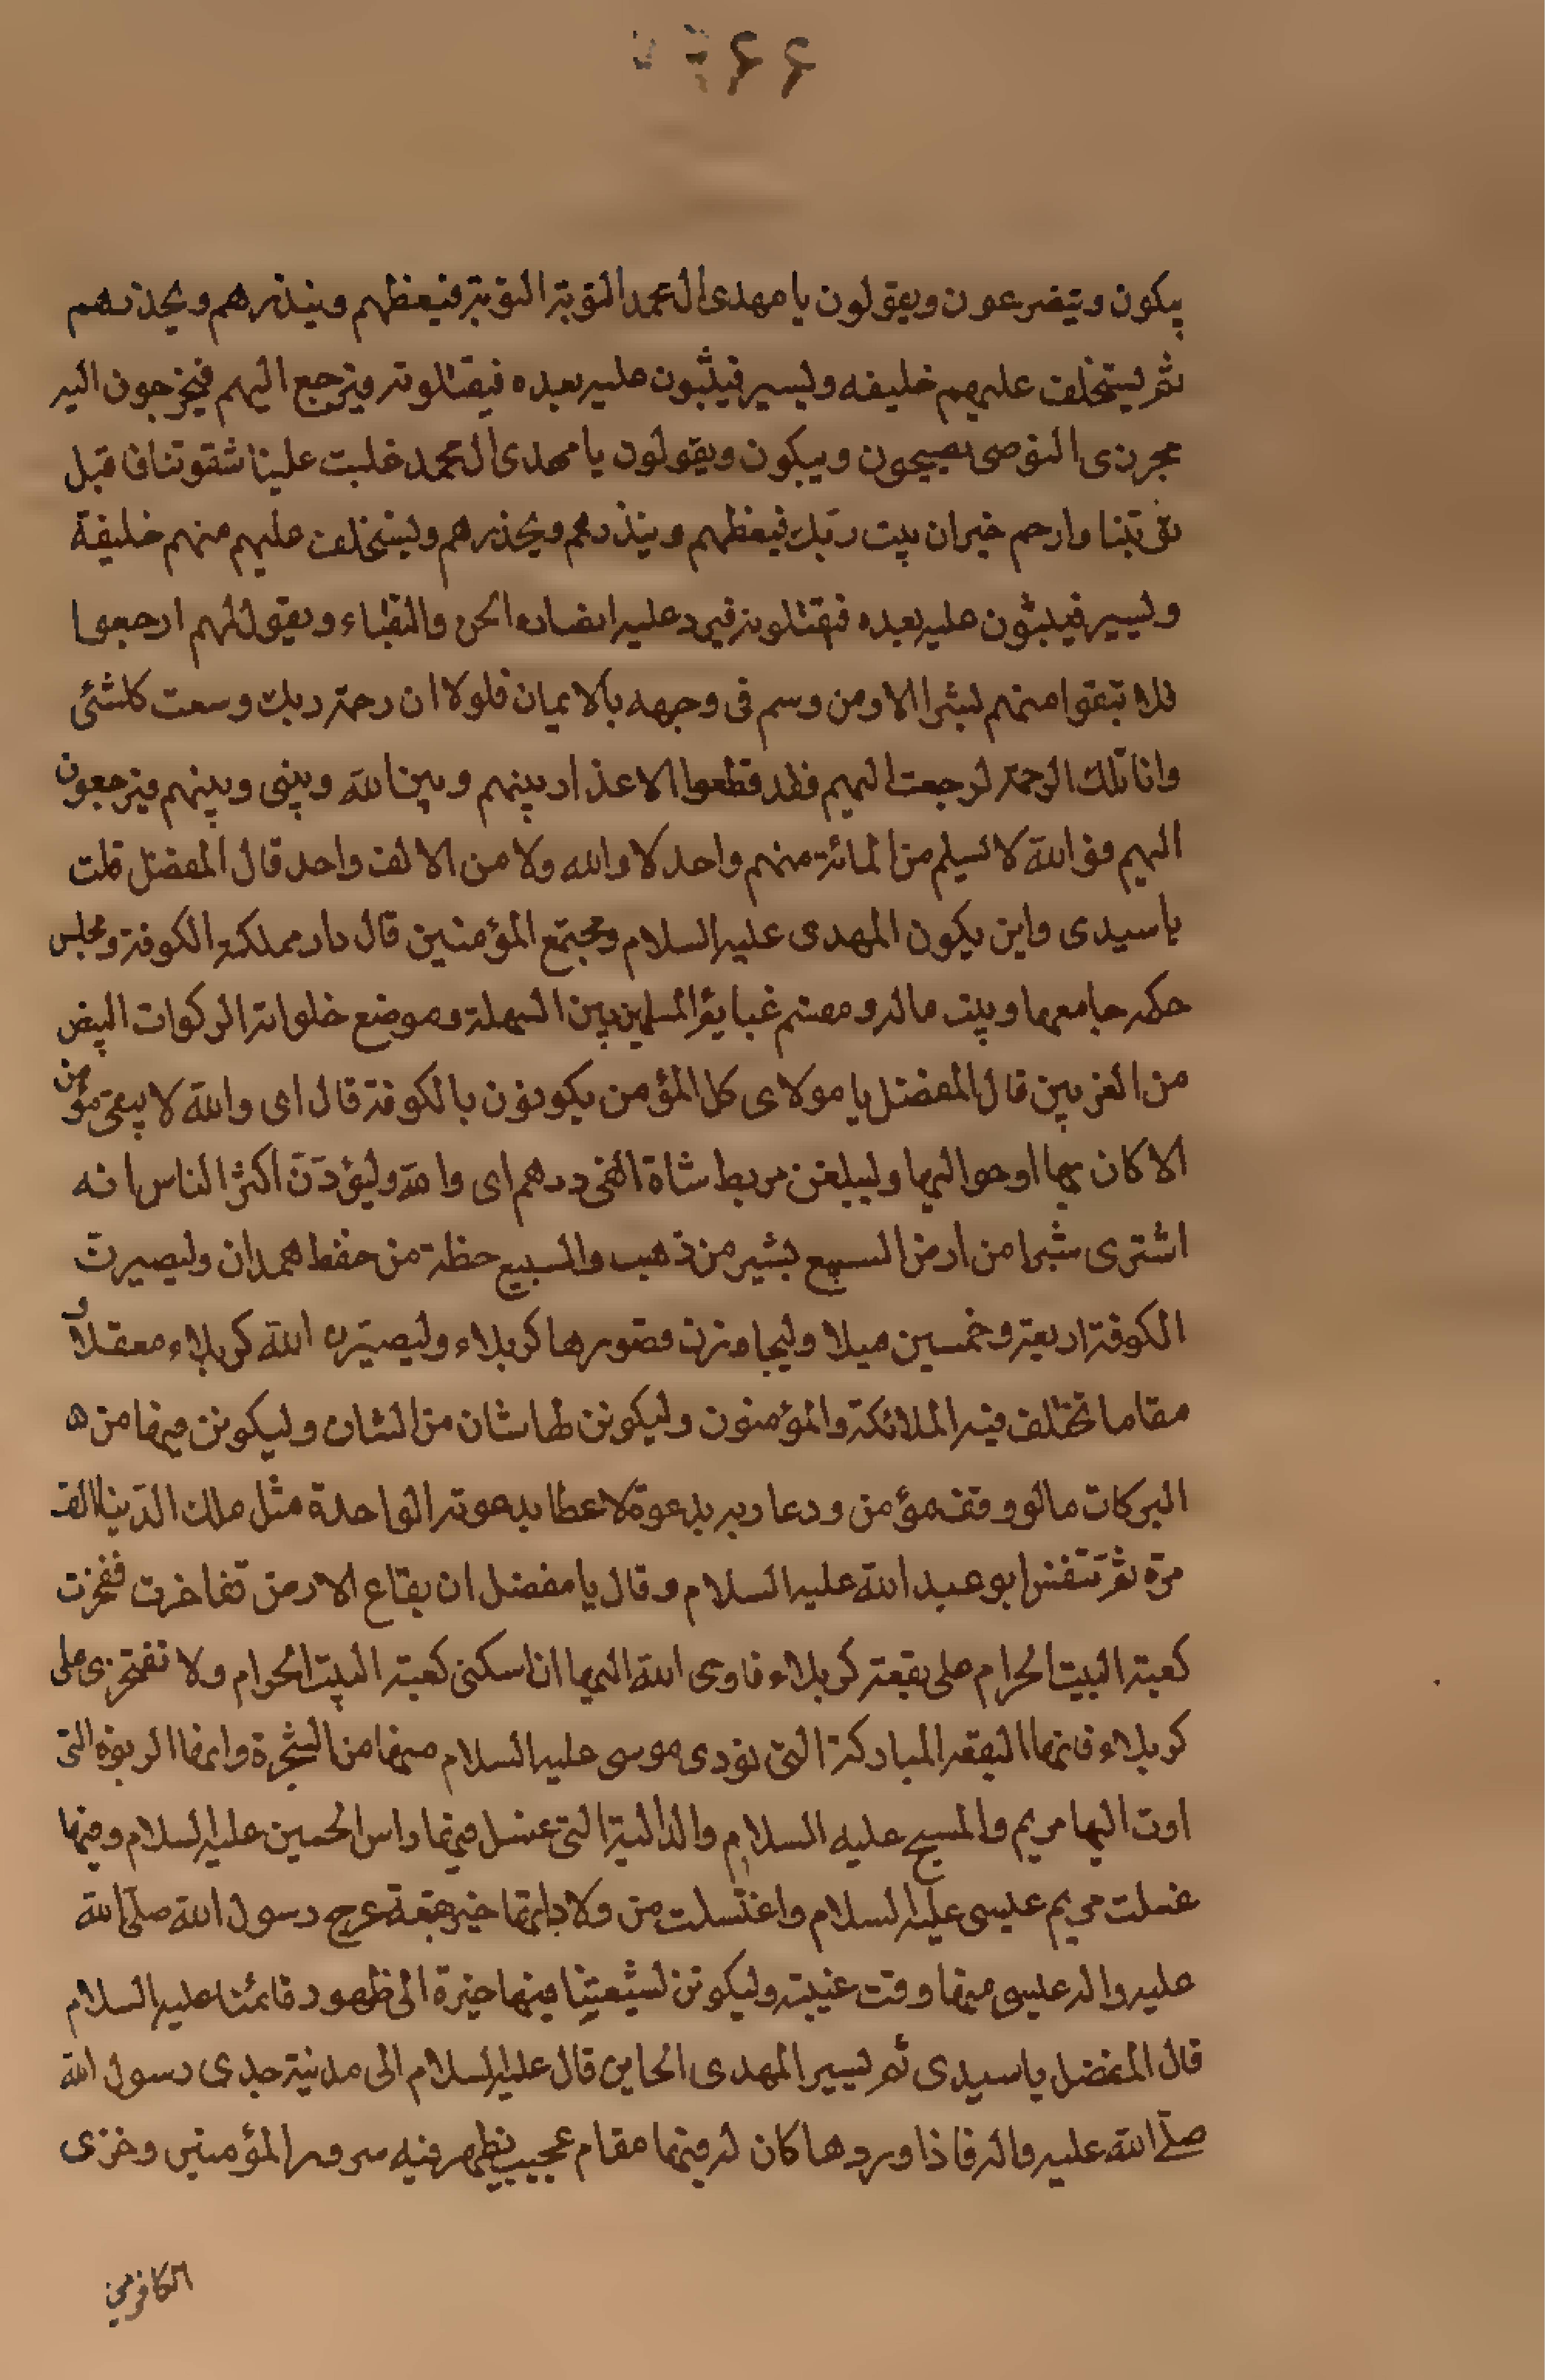 ۶۶
يبكون ويتضرعون ويقولون يا مهدى ال محمد التوبة التوبة فيعظهم وينذرهم ويحذرهم
ثم يستخلف عليهم خليفه ويسير فيثبون عليه بعده فيقتلونه فيرجع اليهم فيخرجون اليه
مجززى النوصى يصيحون ويبكون ويقولون يا مهدى ال محمد غلبت علينا شقوتنا فاقبل
توبتنا وارحم جيران بيت ربك فيعظهم وينذرهم ويحذرهم ويستخلف عليهم منهم خليفة
ويسير فيثبون عليه بعده فيقتلونه فيرد عليه انصاره الجن والنقباء ويقول لهم ارجعوا
فلا تبقوا منهم بشرا الا ومن وسم فى وجهه بالايمان فلولا ان رحمة ربك وسعت كلشئى
وانا تلك الرحمة لرجعت اليهم فقد قطعوا الاعذار بينهم وبين الله وبينى وبينهم فيرجعون
اليهم فو الله لا يسلم من المائة منهم واحد لا والله ولا من الالف واحد قال المفضل قلت
يا سيدى واين يكون المهدى عليه السلام ومجتمع المؤمنين قال دار مملكته الكوفة ومجلس
حكمه جامعها وبيت ماله ومقسم غنايم المسلمين بين السهلة وموضع خلواته الركوات البيض
من الغربين قال المفضل يا مولاى كل المؤمن يكونون بالكوفة قال اى والله لا يبقى مؤمن
الا كان بها او حواليها وليبلغن مربط شاة الفى درهم اى والله وليؤدّنّ اكثر الناس انه
اشترى شبرا من ارض السبيع بشبر من ذهب والسبيع خطة من خطط همدان وليصيرن
الكوفة اربعة وخمسين ميلا وليجاوزن قصورها كربلاء وليصيّرن الله كربلاء معقلا و
مقاما تختلف فيه الملائكة والمؤمنون وليكونن لها شان من الشان وليكونن فيها من ه
البركات ما لو وقف مؤمن ودعا ربه بدعوة لاعطا بدعوته الواحدة مثل ملك الدّنيا الف
مرّة ثمّ تنفس ابو عبد الله عليه السلام وقال يا مفضل ان بقاع الارض تفاخرت ففخرت
كعبة البيت الحرام على بقعة كربلاء فاوحى الله اليها ان اسكنى كعبة البيت الحرام ولا تفتخرى على
كربلاء فانها البقعة المباركة التى نودى موسى عليه السلام منها من الشجرة وانها الربوة التى
اوت اليها مريم والمسيح عليه السلام والدالية التى غسل فيها راس الحسين عليه السلام وفيها
غسلت مريم عيسى عليه السلام واغتسلت من ولادتها خير بقعة عرج رسول الله صلّى الله
عليه واله عيسى منها وقت غيبته وليكونن لشيعتنا فيها خيرة الى ظهور قائمنا عليه السلام
قال المفضل يا سيدى ثم يسير المهدى الى اين قال عليه السلام الى مدينة جدى رسول الله
صلّى الله عليه واله فاذا وردها كان له فيها مقام عجيب يظهر فيه سرور المؤمنين وخزى
الكافرين